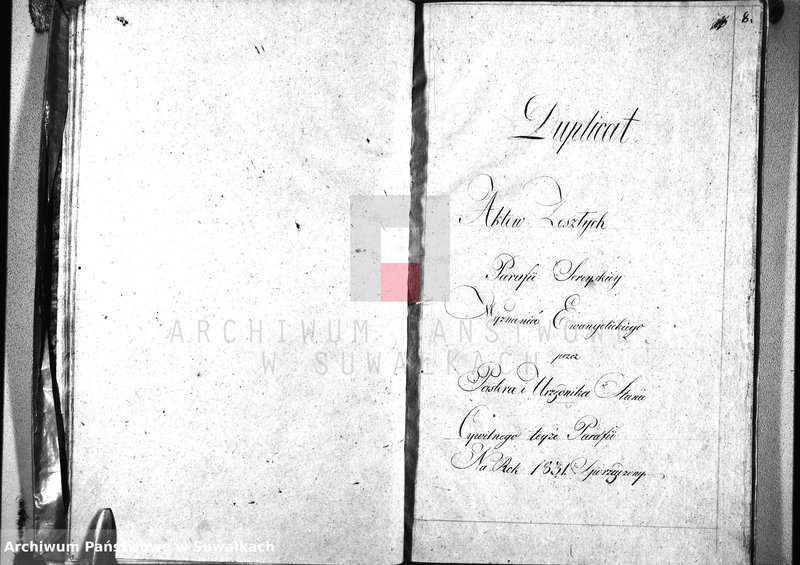 8.
Duplicat
Aktow Zeszłych
Parafii Sereyskiey
Wyznania Ewangelickiego
przez
Pastora i Urzędnika Stanu
Cywilnego teyże Parafii
Na Rok 1831. Sporządzony
ARCHIWUM PAŃSTWOWE
W SUWAŁKACH
Archiwum Państwowe w Suwałkach